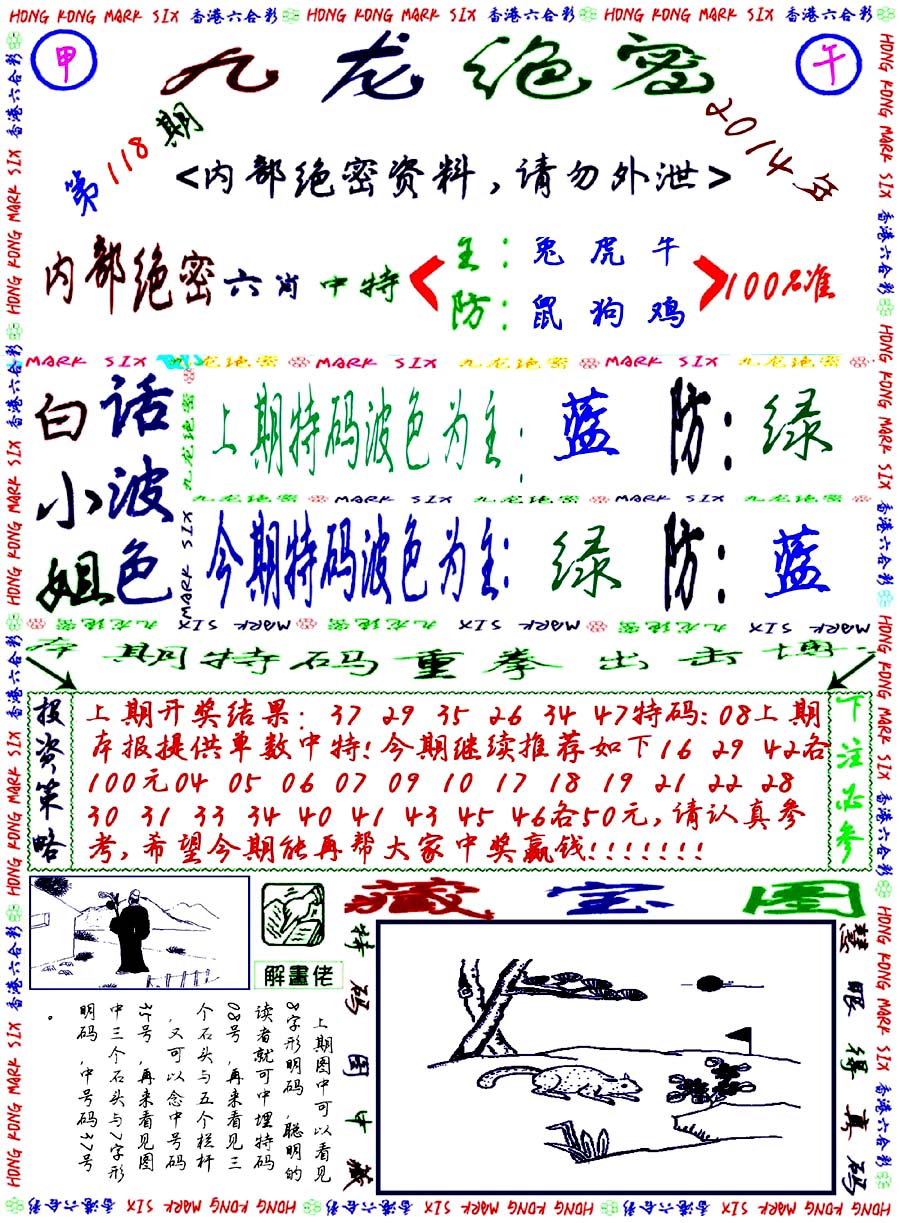 HONG KONG MARK SIX 香港六合彩 HONG KONG MARK SIX 香港六合彩 HONG KONG MARK SIX 香港六合彩
甲
九龙绝密
午
第118期
2014年
<内部绝密资料,请勿外泄>
内部绝密六肖中特
主:兔虎牛
防:鼠狗鸡
100%准
MARK SIX 九龙绝密 MARK SIX 九龙绝密 MARK SIX 九龙绝密
白话
小波
姐色
上期特码波色为主:蓝 防:绿
九龙绝密 MARK SIX 九龙绝密 MARK SIX 九龙绝密
今期特码波色为主:绿 防:蓝
MARK SIX 九龙绝密 MARK SIX 九龙绝密 MARK SIX 九龙绝密
本期特码重拳出击
投资策略
上期开奖结果:37 29 35 26 34 47特码:08上期
本报提供单数中特!今期继续推荐如下16 29 42各
100元04 05 06 07 09 10 17 18 19 21 22 28
30 31 33 34 40 41 43 45 46各50元,请认真参
考,希望今期能再帮大家中奖赢钱!!!!!!!
下注必参
解畫佬
藏宝图
特码图中藏
慧眼得真码
上期图中可以看见
8字形明码,聪明的
读者就可中埋特码
08号,再来看见三
个石头与五个栏杆
,又可以念中号码
35号,再来看见图
中三个石头与7字形
明码,中号码37号
。
HONG KONG MARK SIX 香港六合彩 HONG KONG MARK SIX 香港六合彩 HONG KONG MARK SIX 香港六合彩